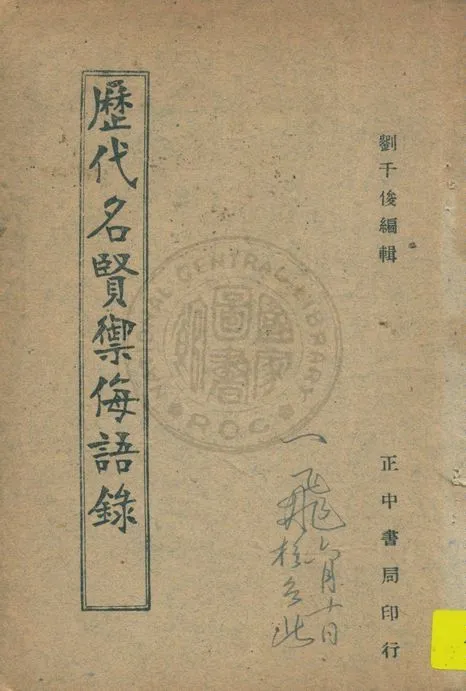 劉千俊編輯
正中書局印行
歷代名賢禦侮語錄
一飛
六月十日
NATIONAL CENTRAL LIBRARY
ROC
國家圖書館